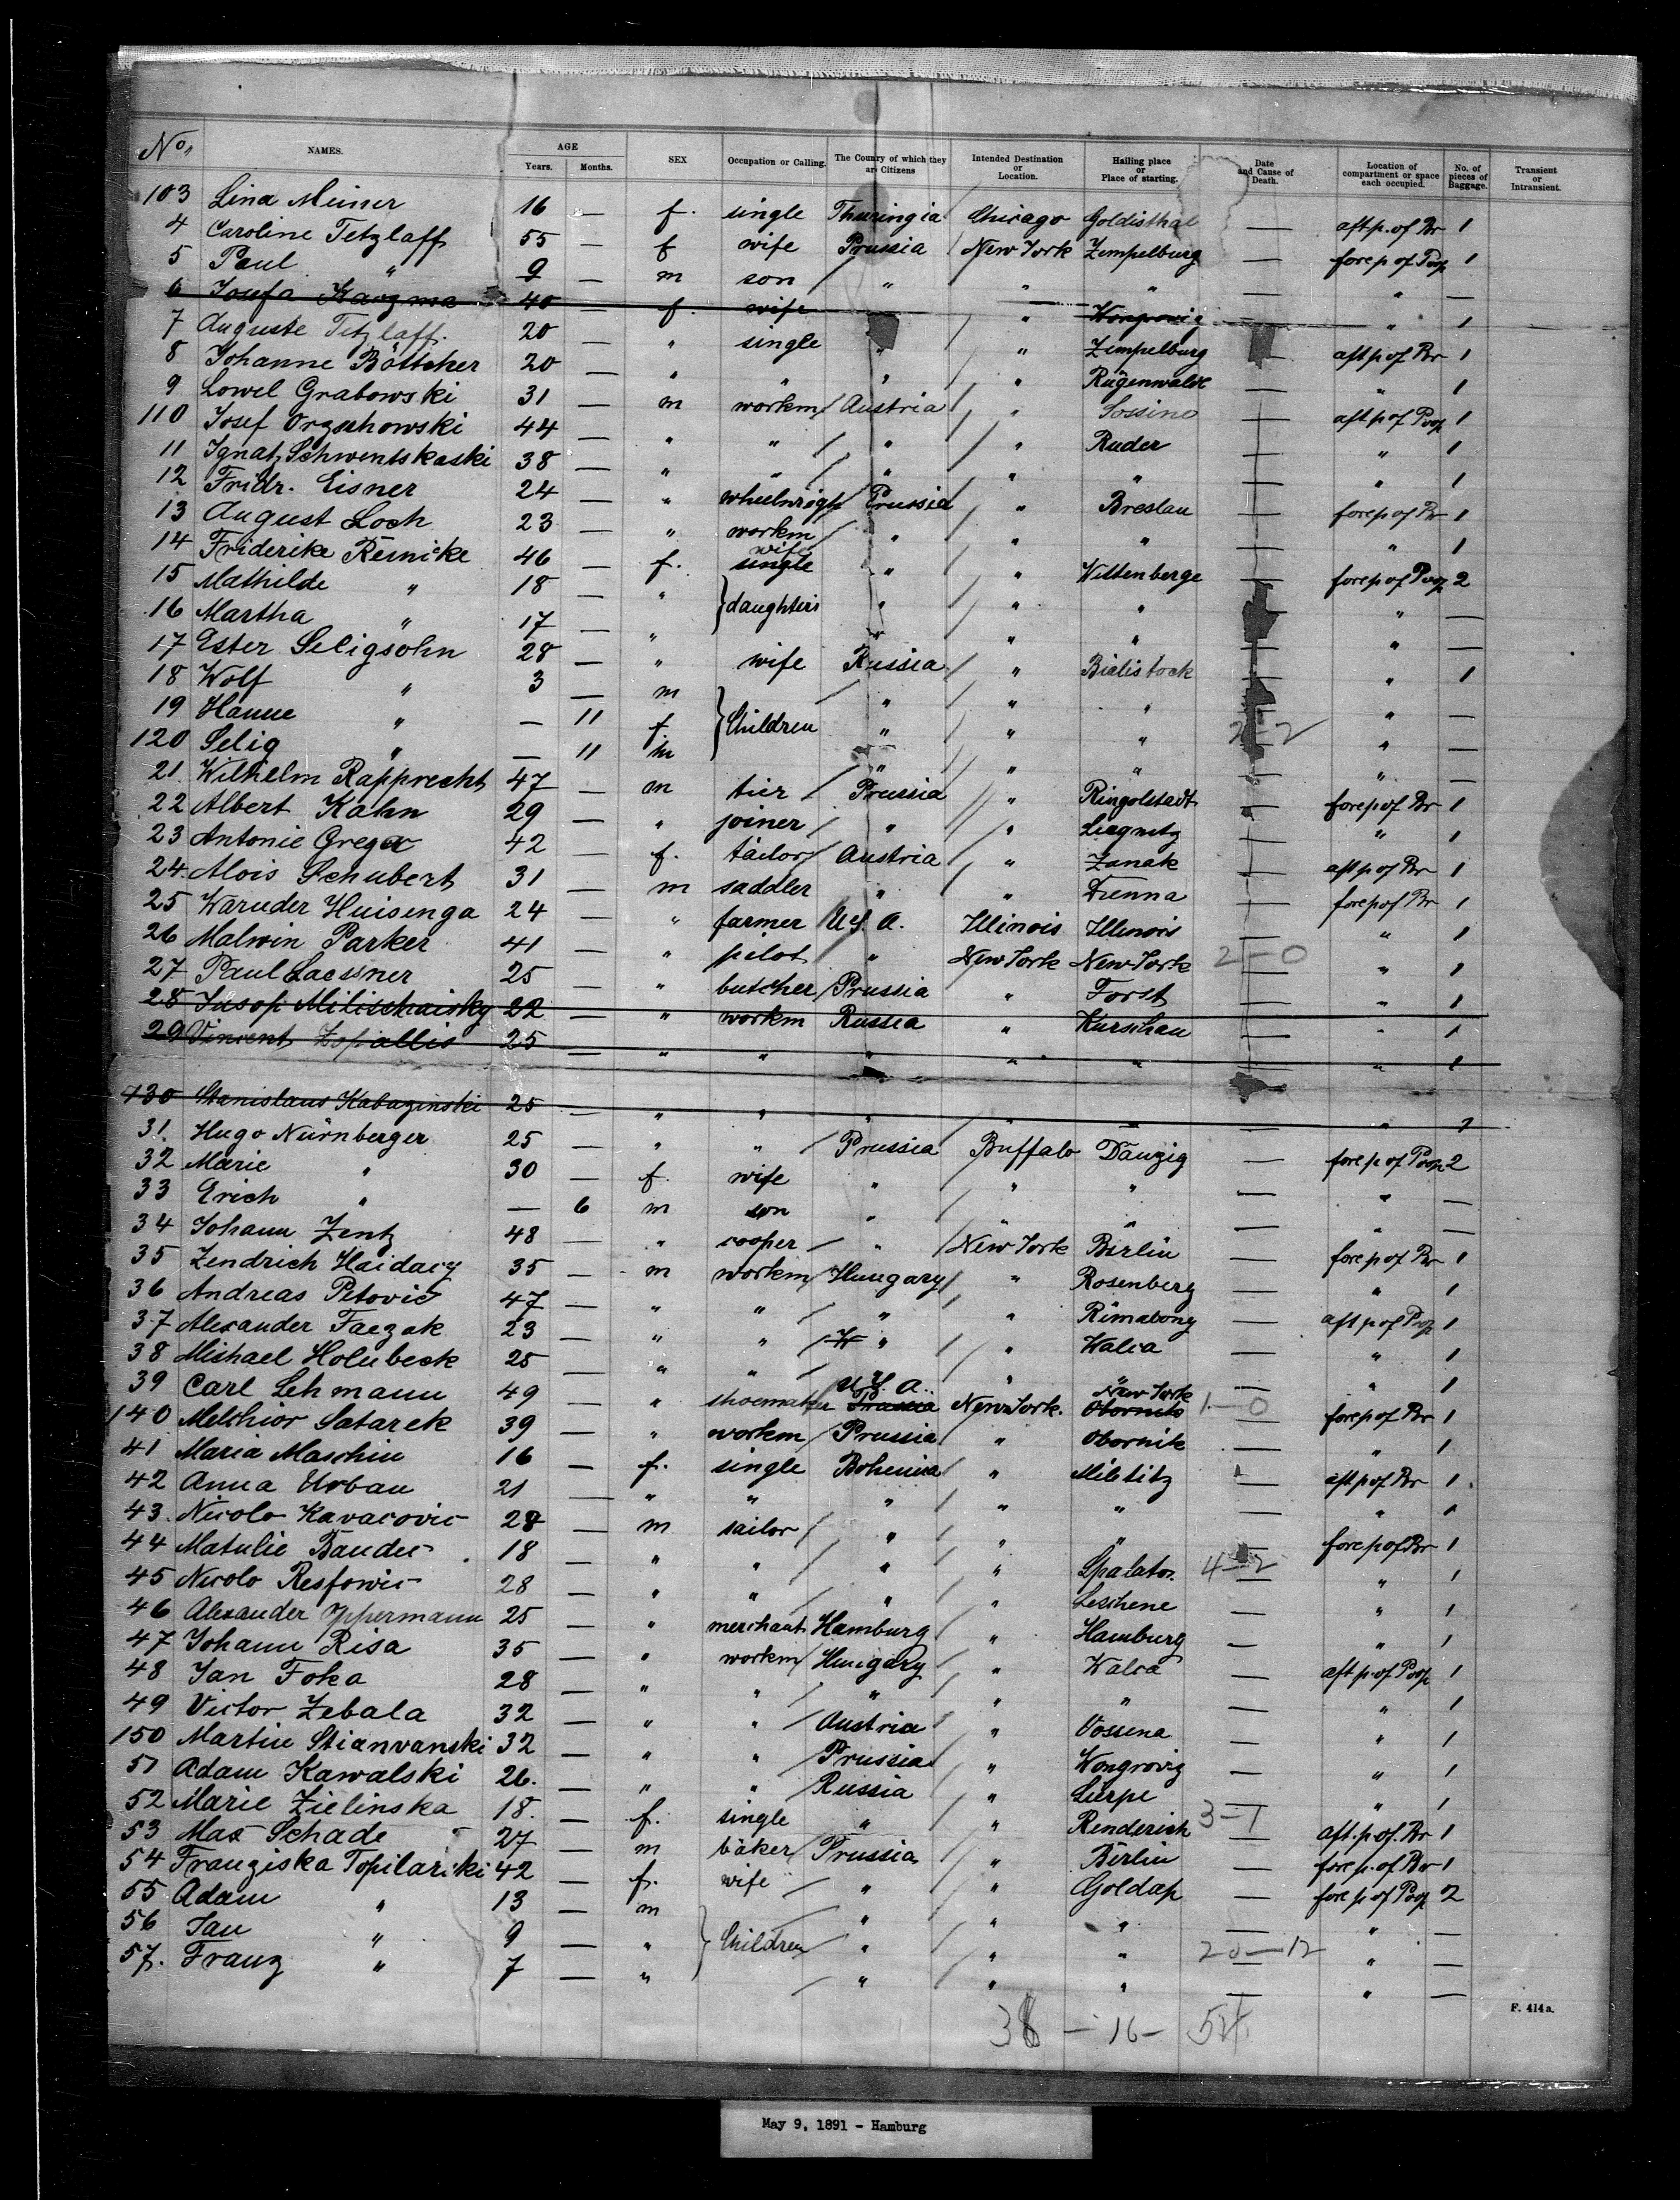 No. NAMES. AGE Years. Months. SEX Occupation or Calling. The Country of which they are Citizens Intended Destination or Location. Hailing place or Place of starting. Date and Cause of Death. Location of compartment or space each occupied. No. of pieces of Baggage. Transient or Intransient.
103 Lina Meiner 16 — f. single Thuringia Chicago Goldisthal — aft p. of Br 1
4 Caroline Tetzlaff 55 — f wife Prussia New York Zempelburg — fore p of Poop 1
5 Paul " 9 — m son " " " — " —
6 Josefa 40 — f. wife " — " 1
7 Auguste Tetzlaff. 20 — " single " " Zempelburg — aft p of Br 1
8 Johanne Böttcher 20 — " " " " Rügenwalde — " 1
9 Lowel Grabowski 31 — m workm Austria " Sossino — aft p of Poop 1
110 Josef Orzschowski 44 — " " " " Ruder — " 1
11 Ignatz Schwentskaski 38 — " " " " " — " 1
12 Fridr. Eisner 24 — " wheelwright Prussia " Breslau — fore p of Br 1
13 August Loch 23 — " workm " " " — " 1
14 Friderike Reinicke 46 — f. single wife " " Wittenberge — fore p of Poop 2
15 Mathilde " 18 — " } daughters " " " — " —
16 Martha " 17 — " " " " — " —
17 Ester Seligsohn 28 — " wife Russia " Bialistock — " 1
18 Wolf " 3 — m } Children " " " — " —
19 Hanne " — 11 f. " " " 2-2 " —
120 Selig " — 11 m " " " — " —
21 Wilhelm Rapprecht 47 — m tier Prussia " Ringolstadt — fore p of Br 1
22 Albert Kahn 29 — " joiner " " Liegnitz — " 1
23 Antonie Grega 42 — f. tailor Austria " Zanak — aft p of Br 1
24. Alois Schubert 31 — m saddler " " Vienna — fore p of Br 1
25 Waruder Huisenga 24 — " farmer U.S. A. Illinois Illinois — " 1
26 Malwin Parker 41 — " pilot " New York New York 2-0 " 1
27 Paul Laessner 25 — " butcher Prussia " Forst — " 1
28 Jusop Milischaisky 22 — " workm Russia " Kurschau — " 1
29 Vincent Zopallis 25 — " " " " " — " 1
130 Stanislaus Kabazinski 25 — " " " " — "
31. Hugo Nürnberger 25 — " " Prussia Buffalo Danzig — fore p of Poop 2
32 Marie " 30 — f. wife " " " — " —
33 Erich " — 6 m son " " " — " —
34 Johann Zentz 48 — " cooper " New York Berlin — fore p of Br 1
35 Zendrich Haidacy 35 — m workm Hungary " Rosenberg — " 1
36 Andreas Petovic 47 — " " " " Rimabony — aft p of Poop 1
37 Alexander Faczak 23 — " " " " Walca — " 1
38 Michael Holubeck 25 — " " " " " — " 1
39 Carl Lehmann 49 — " shoemaker Prussia U.S. A. New York. Obornik New York 1-0 fore p of Br 1
140 Melchior Satarek 39 — " workm Prussia " Obornik — " 1
41 Maria Maschin 16 — f. single Bohemia " Miltitz — aft p of Br 1
42 Anna Urban 21 — " " " " " — " 1
43. Nicolo Kavacovic 28 — m sailor " " " — fore p of Br 1
44 Matulic Bandu 18 — " " " " Spalator. 4-2 " 1
45 Nicolo Resfowic 28 — " " " " Leschene — " 1
46 Alexander Ippermann 25 — " merchant Hamburg " Hamburg — " 1
47 Johann Risa 35 — " workm Hungary " Walca — aft p. of Poop 1
48 Jan Foka 28 — " " " " " — " 1
49 Victor Zebala 32 — " " Austria " Vossena — " 1
150 Martin Stianvanski 32 — " " Prussia " Wongrovig — " 1
51 Adam Kawalski 26. — " " Russia " Lierpe — " 1
52 Marie Zielinska 18. — f. single " " Renderish 3-1 aft. p. of. Br 1
53 Max Schade 27 — m bäker Prussia " Berlin — fore p. of Br 1
54 Franziska Topilariki 42 — f. wife " " Goldap — fore p of Poop 2
55 Adam " 13 — m } Children " " " — " —
56 Jan " 9 — " " " " 20-12 " —
57. Franz " 7 — " " " " — " —
F. 414 a.
38 - 16 -
May 9, 1891 - Hamburg